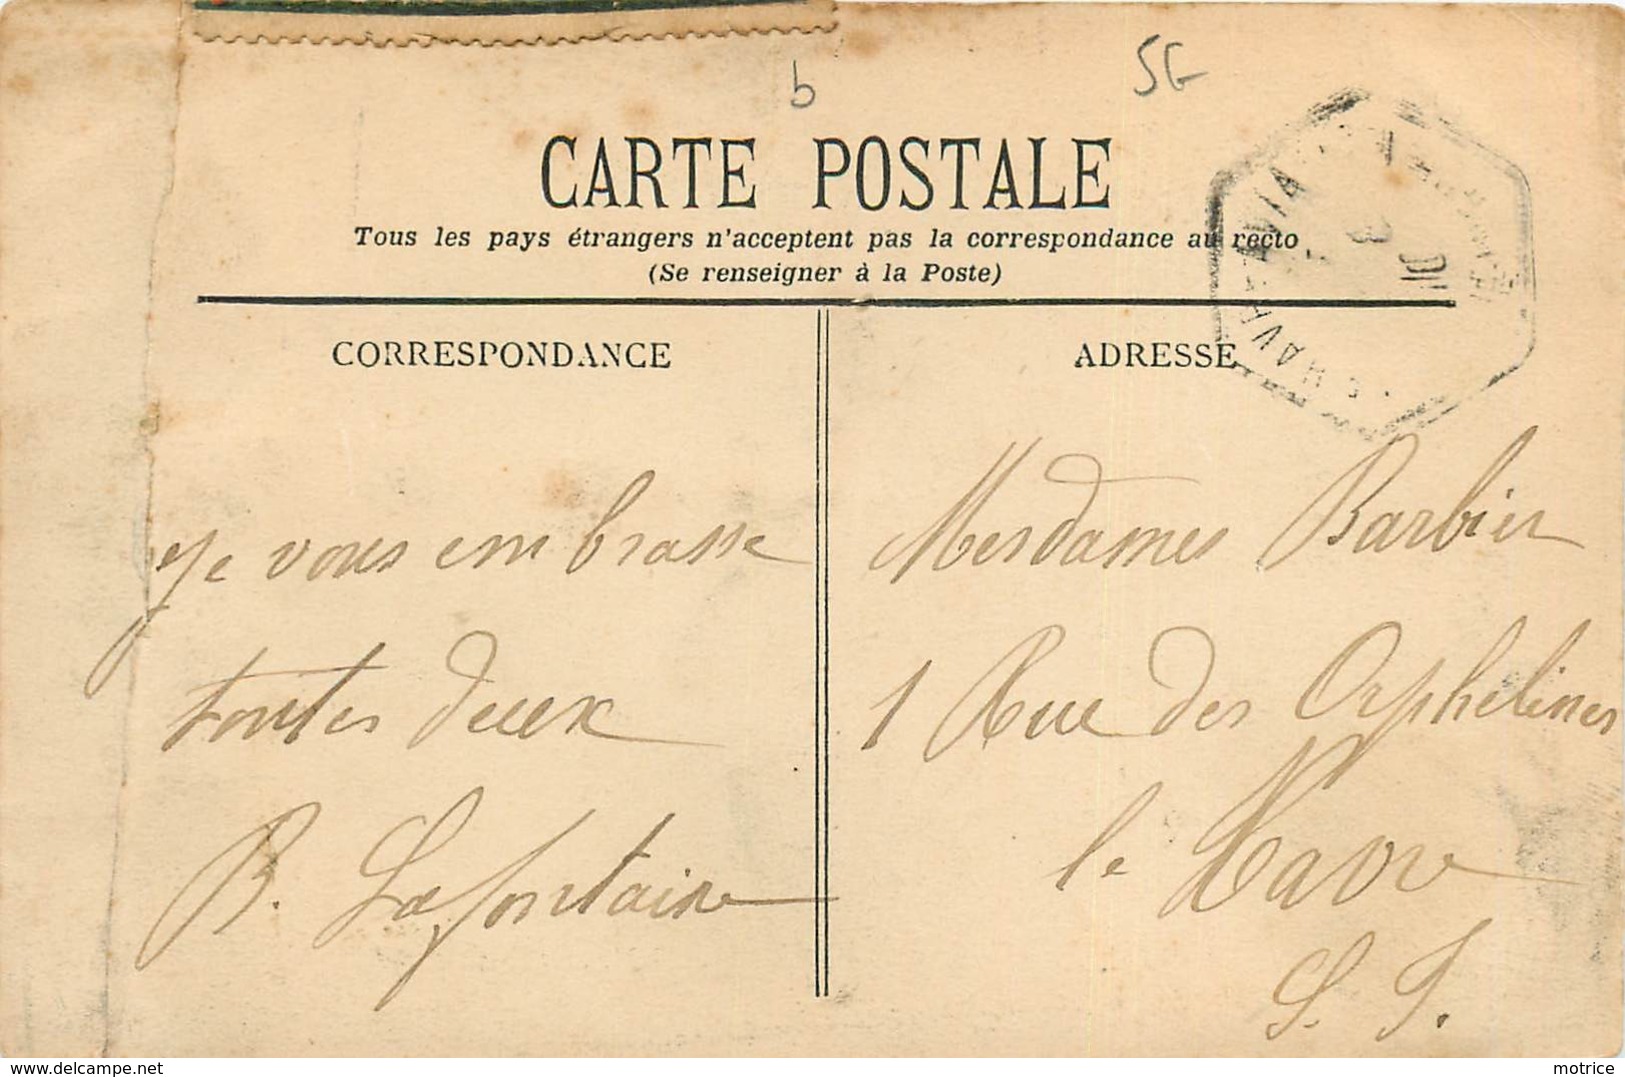 b
SG
CARTE POSTALE
Tous les pays étrangers n'acceptent pas la correspondance au recto
(Se renseigner à la Poste)
CORRESPONDANCE
ADRESSE
Je vous em brasse
toutes deux
B. Lafontaine
Mesdames Barbier
1 Rue des Orphelines
le Havre
S. I.
www.delcampe.net
motrice